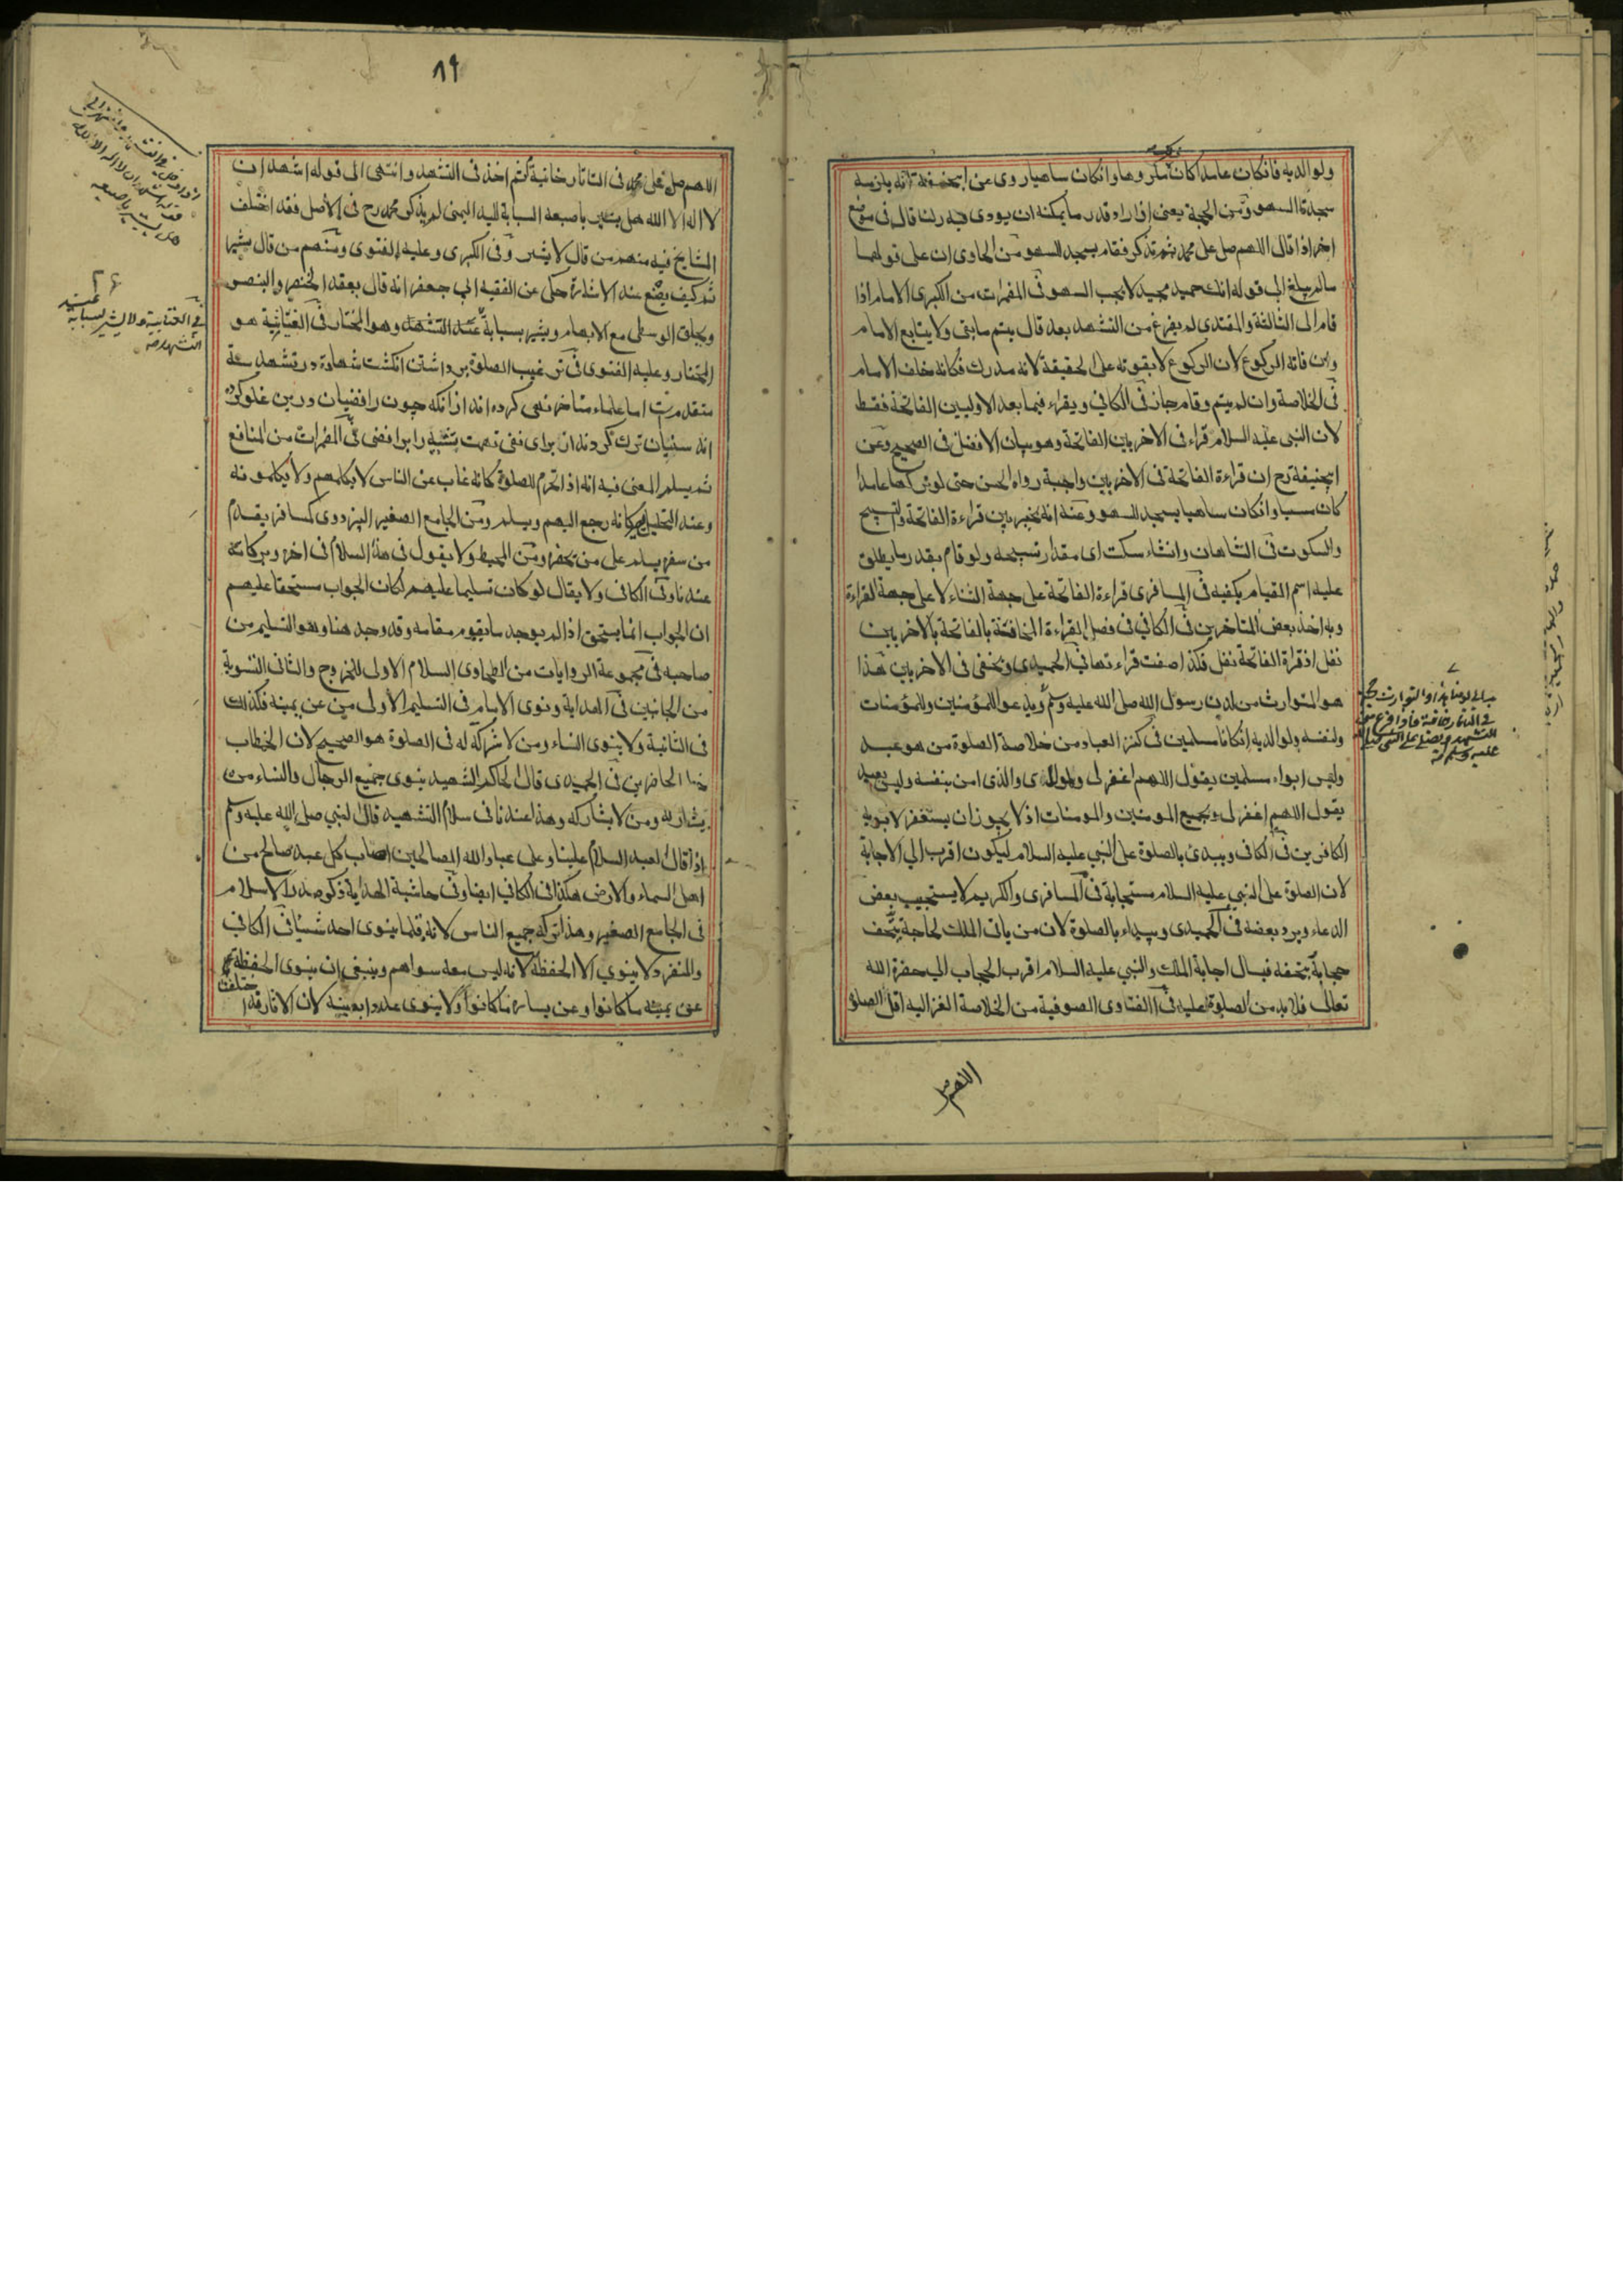 ولوالديه فانكان عامدا كان مكروها وانكان ساهيا روى عن ابيحنيفة انه يلزمه
سجدة السهو ومن الحجة يعنى اذا زاد قدر ما يمكنه ان يودى فيه ركنا قال فى موضع
اخر اذا قال اللهم صل على محمد ثم تذكر فقام يسجد للسهو من الحاوى ان على قولهما
مالم يبلغ الى قوله انك حميد مجيد لا يجب السهو فى المضمرات من الكبرى الامام اذا
قام الى الثالثة والمقتدى لم يفرغ من التشهد بعد قال يتم مابقى ولا يتابع الامام
وان فاته الركوع لان الركوع لا يفوته على الحقيقة لانه مدرك فكانه خلف الامام
فى الخلاصة وان لم يتم وقام جاز فى الكافى ويقراء فيما بعد الاوليين الفاتحة فقط
لان النبى عليه السلام قراء فى الاخريين الفاتحة وهو بيان الافضل فى الصحيح وعن
ابيحنيفة رح ان قراءة الفاتحة فى الاخريين واجبة رواه الحسن حتى لو تركها عامدا
كان مسيا وانكان ساهيا يسجد للسهو وعنه انه يخير بين قراءة الفاتحة والتسبيح
والسكوت فى الشاهان وانشاء سكت اى مقدار تسبيحه ولو قام بقدر ما يطلق
عليه اسم القيام يكفيه فى المسافرى قراءة الفاتحة على جهة الثناء لا على جهة القراءة
وبه اخذ بعض المتاخرين فى الكافى فى فصل القراءة المخافتة بالفاتحة بالاخريين
نفل اذ قراة الفاتحة نفل فكذا صفت قراءتها فى الحميدى ويخفى فى الاخريين هذا
هو المتوارث من لدن رسول الله صلى الله عليه وسلم ويدعو للمؤمنين وللمؤمنات
ولنفسه ولوالديه انكانا مسلمين فى كنز العباد من خلاصة الصلوة من هو عبد
وليس ابواه مسلمين يقول اللهم اغفر لى ولوالدى والذى امن بنفسه وليس بعبد
يقول اللهم اغفر لى ولجميع المومنين والمومنات اذ لا يجوز ان يستغفر لابويه
الكافرين فى الكافى ويبدى بالصلوة على النبى عليه السلام ليكون اقرب الى الاجابة
لان الصلوة على النبى عليه السلام مستجابة فى المسافرى والكريم لا يستجيب بعض
الدعاء ويرد بعضه فى الحميدى ويبداء بالصلوة لان من ياتى الملك لحاجة يتحف
حجابه بتحفه فيسال اجابة الملك والنبى عليه السلام اقرب الحجاب الى حضرة الله
تعالى فلابد من الصلوة عليه فى الفتاوى الصوفية من الخلاصة الغزاليه اقل الصلوة
اللهم
فى التتارخانية فاذا فرغ من
التشهد يصلى على النبى صلى الله
عليه وسلم
٨٩
اللهم صل على محمد فى التاتارخانية ثم اخذ فى التشهد وانتهى الى قوله اشهد ان
لا اله الا الله هل يشير باصبعه السبابة لليد اليمنى لم يذكر محمد رح فى الاصل فقد اختلف
المشايخ فيه منهم من قال لا يشير وفى الكبرى وعليه الفتوى ومنهم من قال يشير
ثم كيف يصنع عند الاشارة حكى عن الفقيه ابى جعفر انه قال يعقد الخنصر والبنصر
ويحلق الوسطى مع الابهام ويشير بسبابة عند التشهد وهو المختار فى الغياثية هو
المختار وعليه الفتوى فى ترغيب الصلوة برداشتن انكشت شهادة در تشهد سنة
متقدمست اما علماء متاخر نهى كرده اند ازانكه چون رافضيان درين غلو كرده
اند سنيان ترك كردند از براى نفى تهمت تشبيه را برافضى فى المضمرات من المنافع
ثم يسلم المعنى فيه انه اذا تحرم للصلوة كانه غاب عن الناس لا يكلمهم ولا يكلمونه
وعند التحليل كانه رجع اليهم ويسلم ومن الجامع الصغير البزدوى كمسافر يقدم
من سفر يسلم على من يحضر ومن المحيط ولا يقول فى هذا السلام فى اخره وبركاته
عندنا وفى الكافى ولا يقال لو كان تسليما عليهم لكان الجواب مستحقا عليهم
ان الجواب انما يستحق اذا لم يوجد ما يقوم مقامه وقد وجد هنا وهو التسليم من
صاحبه فى مجموعة الروايات من الطحاوى السلام الاول للخروج والثانى التسوية
من الجانبين فى الهداية ونوى الامام فى التسليم الاولى من عن يمينه فكذلك
فى الثانية ولا ينوى النساء ومن لا شركة له فى الصلوة هو الصحيح لان الخطاب
الحاضرين فى الحميدى قال الحاكم الشهيد ينوى جميع الرجال والنساء من
يشاركه ومن لا يشاركه وهذا عندنا فى سلام التشهيد قال النبى صلى الله عليه وسلم
اذا قال العبد السلام علينا وعلى عباد الله الصالحين اصاب كل عبد صالح من
اهل السماء والارض هكذا فى الكافى ايضا وفى حاشية الهداية ذكر صدر الاسلام
فى الجامع الصغير وهذا تركه جميع الناس لانه قلما ينوى احد شيئا فى الكافى
والمنفرد لا ينوى الا الحفظة لانه ليس معه سواهم وينبغى ان ينوى الحفظة
عن يمينه ما كانوا وعن يساره ما كانوا ولا ينوى عددا بعينه لان الاثار قد اختلفت
فى العتابية ولا يشير بسبابة عند
التشهد